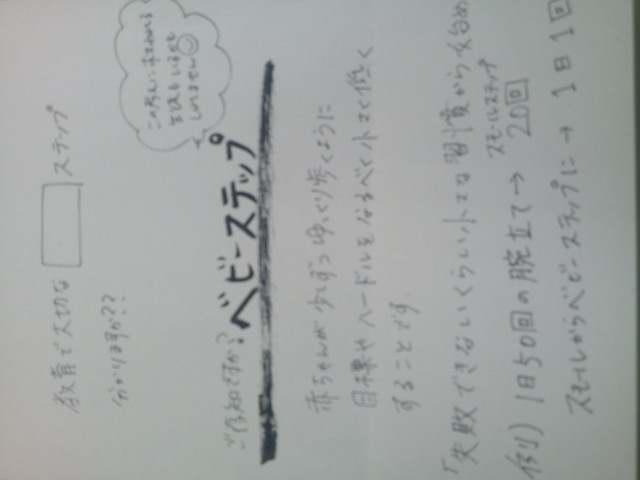 教育で大切な □ ステップ
分かりますか??
ご存知ですか?
ベビーステップ
赤ちゃんが少しずつゆっくり歩くように
目標やハードルをなるべく小さく低く
することです。
「失敗できないくらい小さな習慣から始め
スモールステップ
例) 1日50回の腕立て→ 20回
スモールからベビーステップに→ 1日1回